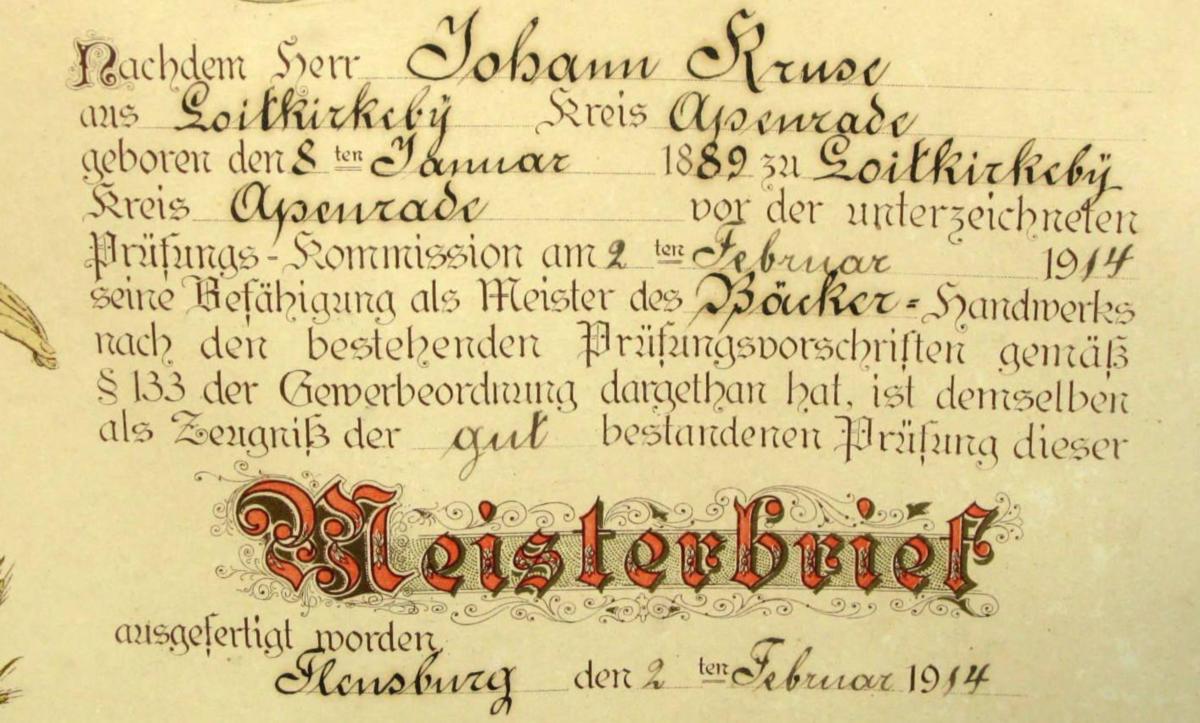 Nachdem Herr Johann Kruse
aus Loitkirkeby Kreis Apenrade
geboren den 8 ten Januar 1889 zu Loitkirkeby
Kreis Apenrade vor der unterzeichneten
Prüfungs-Kommission am 2 ten Februar 1914
seine Befähigung als Meister des Bäcker-Handwerks
nach den bestehenden Prüfungsvorschriften gemäß
§ 133 der Gewerbeordnung dargethan hat, ist demselben
als Zeugniß der gut bestandenen Prüfung dieser
Meisterbrief
ausgefertigt worden
Flensburg den 2 ten Februar 1914